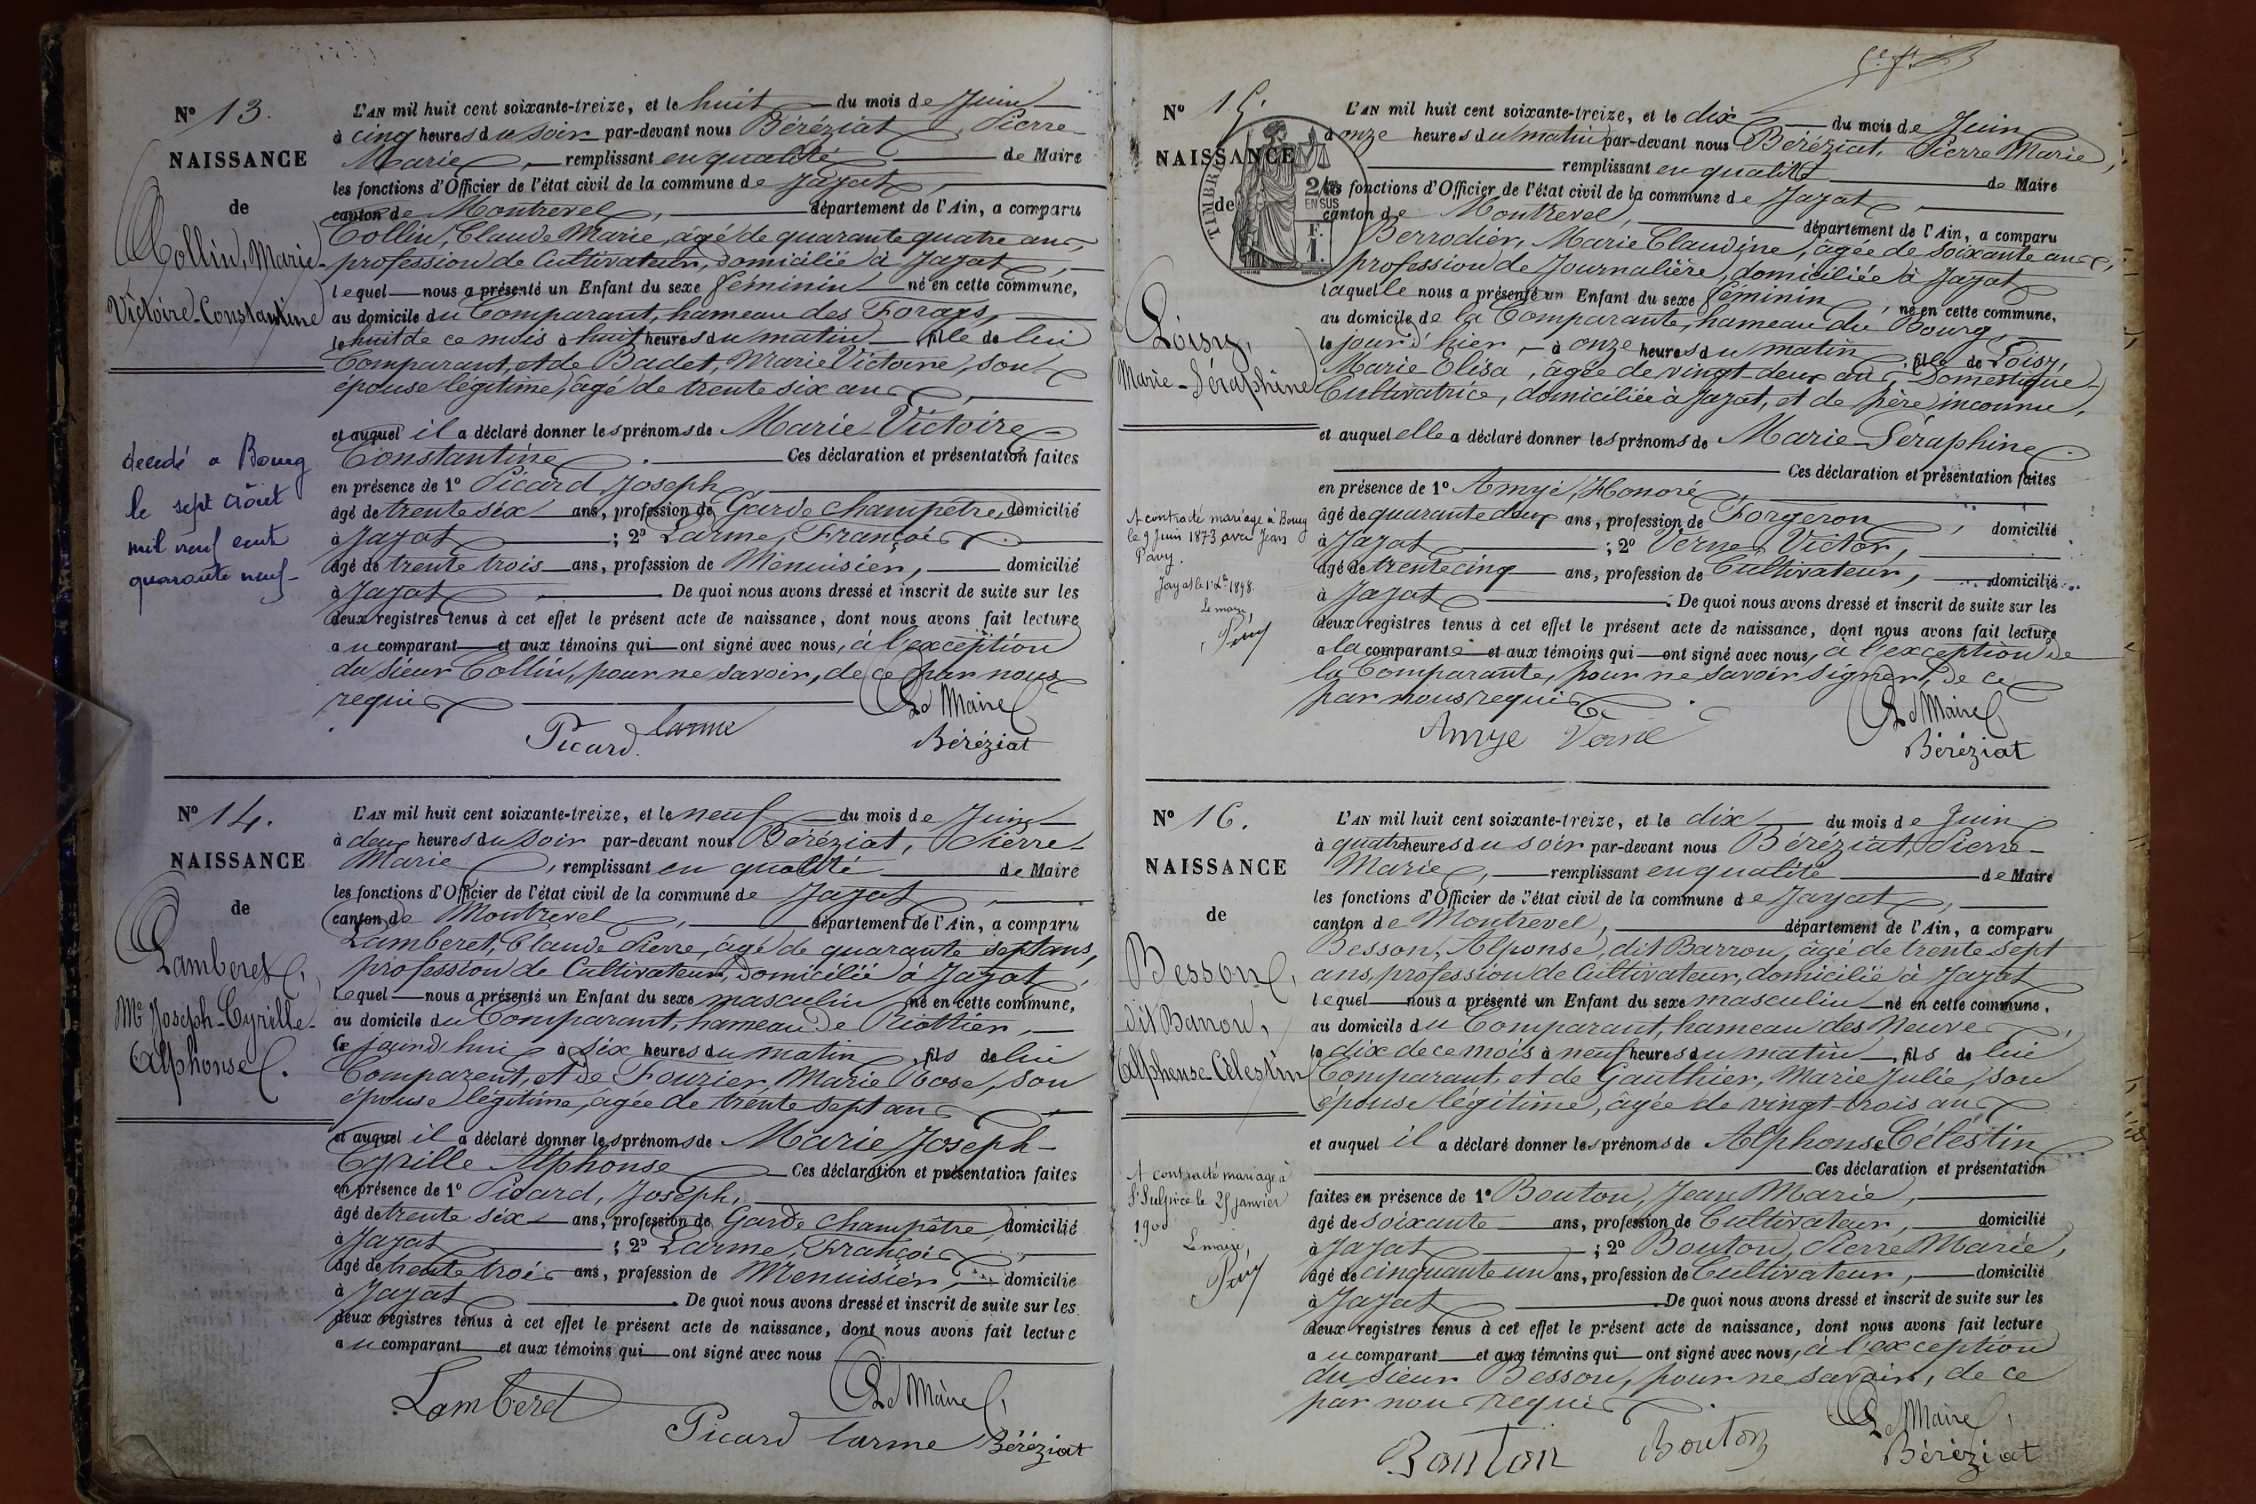 N° 13.
NAISSANCE
de
Collin, Marie-
Victoire-Constantine
decedé a Bourg
le sept Août
mil neuf cent
quarante neuf-
L'AN mil huit cent soixante-treize, et le huit du mois de Juin
à cinq heures du soir par-devant nous Béréziat, Pierre-
Marie, remplissant en qualité de Maire
les fonctions d'Officier de l'état civil de la commune de Jayat,
canton de Montrevel, département de l'Ain, a comparu
Collin, Claude Marie, âgé de quarante quatre ans,
profession de Cultivateur, domicilié à Jayat,
lequel nous a présenté un Enfant du sexe féminin né en cette commune,
au domicile du Comparant, hameau des Forays,
le huit de ce mois à huit heures du matin fille de lui
Comparant, et de Badet, Marie Victoire, son
épouse légitime, âgé de trente six ans,
et auquel il a déclaré donner les prénoms de Marie-Victoire
Constantine. Ces déclaration et présentation faites
en présence de 1° Picard Joseph
âgé de trente six ans, profession de Garde champêtre, domicilié
à Jayat ; 2° Larme, François
âgé de trente trois ans, profession de Menuisier, domicilié
à Jayat. De quoi nous avons dressé et inscrit de suite sur les
deux registres tenus à cet effet le présent acte de naissance, dont nous avons fait lecture
au comparant et aux témoins qui ont signé avec nous, à l'exception
du sieur Collin, pour ne savoir, de ce par nous
requis
Le Maire
Picard larme Béréziat
N° 14.
NAISSANCE
de
Lamberet,
Mie Joseph-Cyrille-
Alphonse.
L'AN mil huit cent soixante-treize, et le neuf du mois de Juin
à deux heures du soir par-devant nous Béréziat, Pierre-
Marie, remplissant en qualité de Maire
les fonctions d'Officier de l'état civil de la commune de Jayat,
canton de Montrevel, département de l'Ain, a comparu
Lamberet, Claude Pierre, âgé de quarante sept ans,
profession de Cultivateur, domicilié à Jayat,
lequel nous a présenté un Enfant du sexe masculin né en cette commune,
au domicile du Comparant, hameau de Riottier,
Ce jourd'hui à six heures du matin, fils de lui
Comparent, et de Fouzier, Marie Rose, son
épouse légitime, âgée de trente sept ans
et auquel il a déclaré donner les prénoms de Marie Joseph-
Cyrille Alphonse Ces déclaration et présentation faites
en présence de 1° Picard, Joseph,
âgé de trente six ans, profession de Garde champêtre, domicilié
à Jayat ; 2° Larme, François,
âgé de trente trois ans, profession de Menuisier, domicilié
à Jayat. De quoi nous avons dressé et inscrit de suite sur les
deux registres tenus à cet effet le présent acte de naissance, dont nous avons fait lecture
au comparant et aux témoins qui ont signé avec nous
Lamberet Le Maire,
Picard larme Béréziat
N° 15.
NAISSANCE
de
TIMBRE
2/10
EN SUS
F.
1.
Loisy,
Marie-Séraphine
A contracté mariage à Bourg
le 9 Juin 1873 avec Jean
Pavy.
Jayat le 1898.
Le maire,
L'AN mil huit cent soixante-treize, et le dix du mois de Juin
à onze heures du matin par-devant nous Béréziat, Pierre Marie,
remplissant en qualité de Maire
les fonctions d'Officier de l'état civil de la commune de Jayat
canton de Montrevel, département de l'Ain, a comparu
Berrodier, Marie Claudine, âgée de soixante ans,
profession de Journalière, domiciliée à Jayat
laquelle nous a présenté un Enfant du sexe féminin, né en cette commune,
au domicile de la Comparante, hameau du Bourg,
le jour d'hier, à onze heures du matin, fille de Loisy,
Marie-Elisa, âgée de vingt-deux ans, Domestique-
Cultivatrice, domiciliée à Jayat, et de père inconnu,
et auquel elle a déclaré donner les prénoms de Marie-Séraphine.
Ces déclaration et présentation faites
en présence de 1° Amyé, Honoré,
âgé de quarante deux ans, profession de Forgeron, domicilié
à Jayat ; 2° Verne, Victor,
âgé de trente cinq ans, profession de Cultivateur, domicilié
à Jayat. De quoi nous avons dressé et inscrit de suite sur les
deux registres tenus à cet effet le présent acte de naissance, dont nous avons fait lecture
a la comparante et aux témoins qui ont signé avec nous, à l'exception de
la Comparante, pour ne savoir signer, de ce
par nous requis.
Le Maire,
Amye Verne Béréziat
N° 16.
NAISSANCE
de
Besson,
dit Barron,
Alphonse-Célestin
A contracté mariage à
St Sulpice le 25 janvier
1900
Le maire,
L'AN mil huit cent soixante-treize, et le dix du mois de Juin
à quatre heures du soir par-devant nous Béréziat, Pierre-
Marie, remplissant en qualité de Maire
les fonctions d'Officier de l'état civil de la commune de Jayat,
canton de Montrevel, département de l'Ain, a comparu
Besson, Alponse, dit Barron, âgé de trente sept
ans, profession de Cultivateur, domicilié à Jayat
lequel nous a présenté un Enfant du sexe masculin né en cette commune,
au domicile du Comparant, hameau des Neuves,
le dix de ce mois à neuf heures du matin, fils de lui
Comparant, et de Gauthier, Marie Julie, son
épouse légitime, âgée de vingt-trois ans
et auquel il a déclaré donner les prénoms de Alphonse Célestin
Ces déclaration et présentation
faites en présence de 1° Bouton, Jean Marie,
âgé de soixante ans, profession de Cultivateur, domicilié
à Jayat ; 2° Bouton, Pierre Marie,
âgé de cinquante un ans, profession de Cultivateur, domicilié
à Jayat. De quoi nous avons dressé et inscrit de suite sur les
deux registres tenus à cet effet le présent acte de naissance, dont nous avons fait lecture
au comparant et aux témoins qui ont signé avec nous, à l'exception
du sieur Besson, pour ne savoir, de ce
par nous requis.
Le Maire,
Bouton Bouton Béréziat